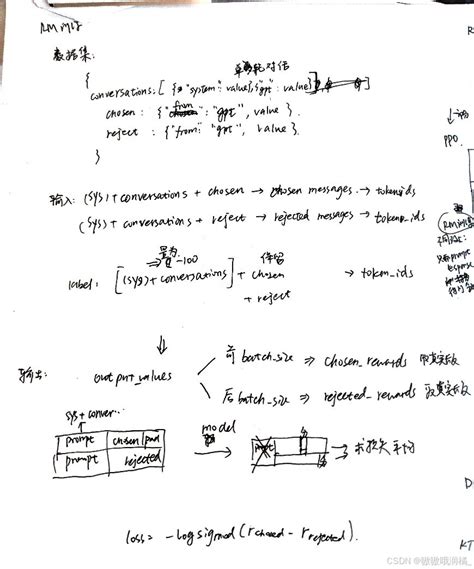 RM 训练
数据集:
单轮对话
{
conversations: [ { "system": value}, {"gpt": value} ]
chosen : {"from": "gpt", value }.
reject : {"from": "gpt", value }.
}
输入: (sys) + conversations + chosen → chosen messages. → token_ids
(sys) + conversations + reject → rejected messages → token_ids
置为 -100
保留
label: [(sys) + conversations] + chosen → token_ids
+ reject
⇓
输出: output_values
前 batch_size ⇒ chosen_rewards
后 batch_size ⇒ rejected_rewards
sys + conver..
prompt chosen pad
prompt rejected
model
→ 求损失平均
loss = -logsigmod (rchosed - rrejected).
PPO
RM训练
CSDN @傲傲哦润橘_